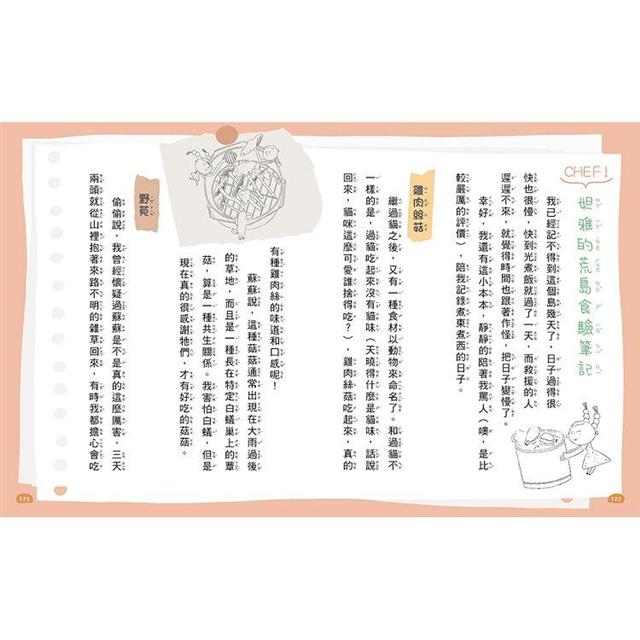 CHEF!
妲雅的荒島食驗筆記
我已經記不得到這個島幾天了，日子過得很
快也很慢，快到光煮飯就過了一天，而救援的人
遲遲不來，就覺得時間也跟著作怪，把日子變慢了。
幸好，我還有這小本本，靜靜的陪著我罵人（噢，是比
較嚴厲的評價），陪我記錄煮東煮西的日子。
雞肉絲菇
繼過貓之後，又有一種食材以動物來命名了。和過貓不
一樣的是，過貓吃起來沒有貓味（天曉得什麼是貓味，話說
回來，貓咪這麼可愛誰捨得吃？），雞肉絲菇吃起來，真的
有種雞肉絲的味道和口感呢！
蘇蘇說，這種菇菇通常出現在大雨過後
的草地，而且是一種長在特定白蟻巢上的蕈
菇，算是一種共生關係。我害怕白蟻，但是
現在真的很感謝牠們，才有好吃的菇菇。
野莧
偷偷說，我曾經懷疑過蘇蘇是不是真的這麼厲害，三天
兩頭就從山裡抱著來路不明的雜草回來，有時我都擔心會吃
172
173